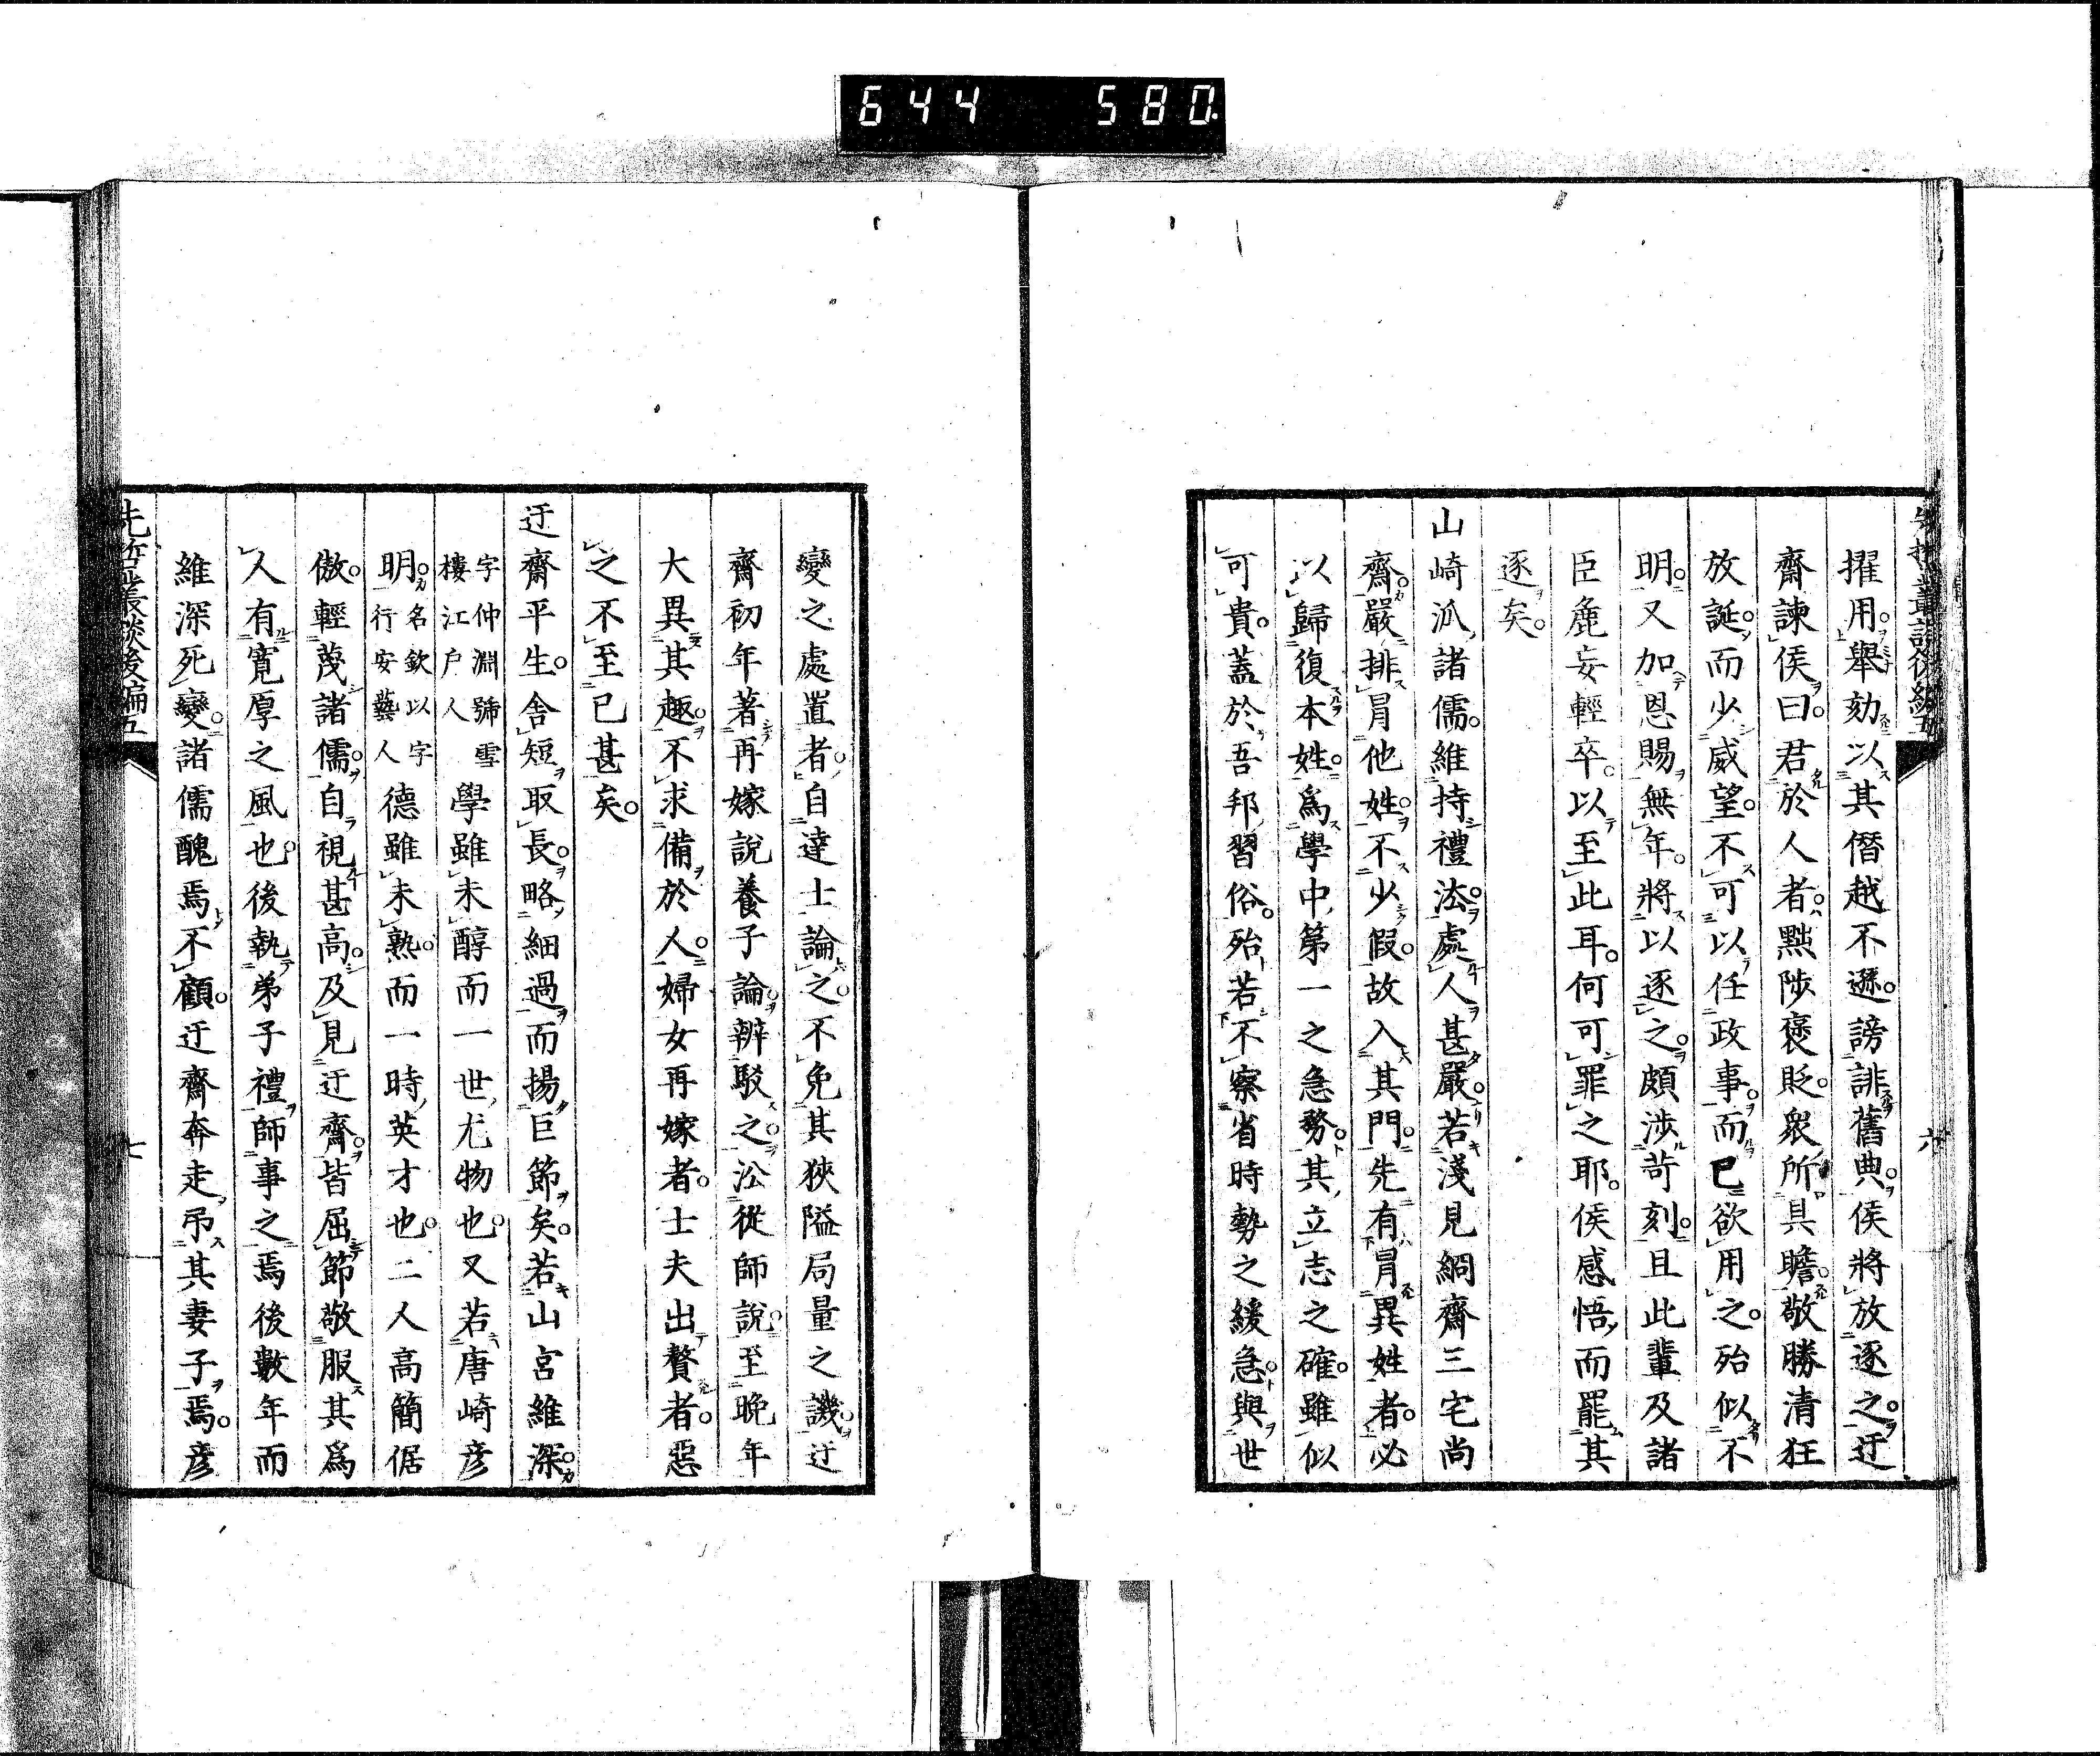 644 580
先哲叢談後編五
六
擢用。舉劾以其僭越不遜。謗誹舊典。侯將放逐之。迂
齋諫侯曰。君於人者。黜陟褒貶。衆所具瞻。敬勝清狂
放誕。而少威望。不可以任政事。而已欲用之。殆似不
明。又加恩賜無年。將以逐之。頗涉苛刻。且此輩及諸
臣麁妄輕卒。以至此耳。何可罪之耶。侯感悟而罷其
逐矣。
山崎派諸儒。維持禮法。處人甚嚴。若淺見絅齋三宅尚
齋。嚴排冒他姓。不少假。故入其門。先有冒異姓者。必
以歸復本姓。爲學中第一之急務。其立志之確。雖似
可貴。蓋於吾邦習俗。殆若不察省時勢之緩急。與世
變之處置者。自達士論之。不免其狹隘局量之譏。迂
齋初年著再嫁說養子論。辨駁之。㳂從師說。至晚年
大異其趣。不求備於人。婦女再嫁者。士夫出贅者。惡
之不至已甚矣。
迂齋平生。舍短取長。略細過而揚巨節矣。若山宮維深。
字仲淵號雪樓江戶人學雖未醇而一世尤物也。又若唐崎彦
明。名欽以字行安藝人德雖未熟。而一時英才也。二人高簡倨
傲。輕蔑諸儒。自視甚高。及見迂齋。皆屈節敬服其爲
人有寬厚之風也。後執弟子禮。師事之焉後數年而
維深死變。諸儒醜焉不顧。迂齋奔走。吊其妻子焉。彦
先哲叢談後編五
七